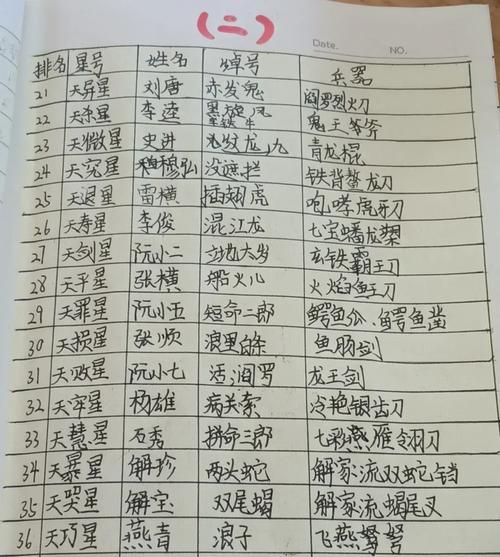 (二)
Date. NO.
排名 星号 姓名 绰号 兵器
21 天异星 刘唐 赤发鬼 阎罗烈火刀
22 天杀星 李逵 黑旋风 铁牛 鬼王斧
23 天微星 史进 九纹龙 青龙棍
24 天究星 穆弘 没遮拦 铁背鳌龙刀
25 天退星 雷横 插翅虎 咆哮虎牙刀
26 天寿星 李俊 混江龙 七宝蟠龙
27 天剑星 阮小二 立地太岁 玄铁霸王刀
28 天平星 张横 船火儿 火焰鱼王刀
29 天罪星 阮小五 短命二郎 鳄鱼、鳄鱼凿
30 天损星 张顺 浪里白条 鱼肠剑
31 天败星 阮小七 活阎罗 龙王剑
32 天牢星 杨雄 病关索 冷艳银齿刀
33 天慧星 石秀 拼命三郎 七彩燕雁翎刀
34 天暴星 解珍 两头蛇 解家流双蛇铛
35 天哭星 解宝 双尾蝎 解家流蝎尾叉
36 天巧星 燕青 浪子 飞燕弩